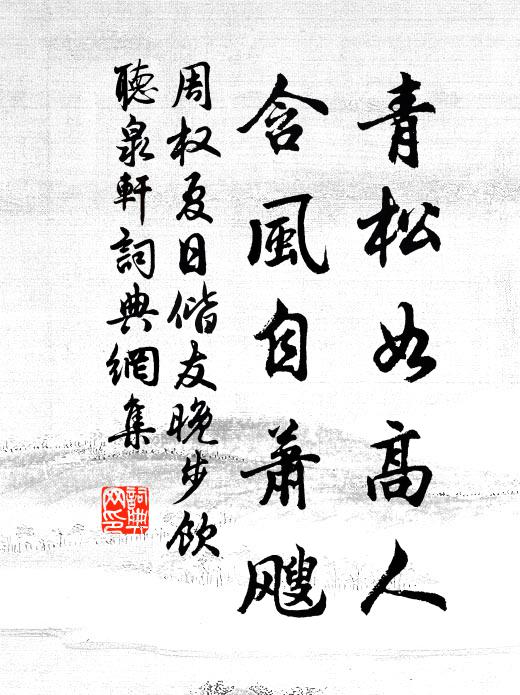 青松如高人
含風自蕭飕
周权夏日偕友晚步饮
聽泉軒詞典網集
詞典网印